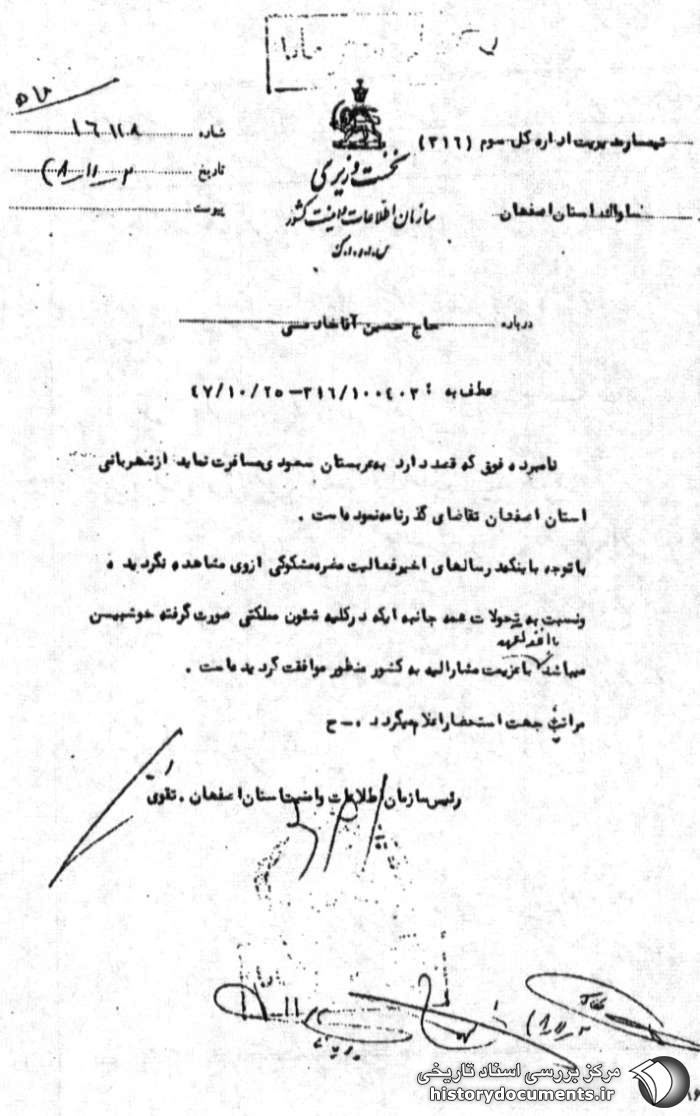 تیمسار مدیریت اداره کل سوم (۳۱۶)
ساواک استان اصفهان
نخست وزیری
سازمان اطلاعات و امنیت کشور
س.ا.و.ا.ک
شماره
تاریخ
پیوست
درباره حاج حسین آقا خادمی
عطف به : ۳۱۶/۱۰۰۴۰۲–۴۷/۱۰/۲۵
نامبرده فوق که قصد دارد بعربستان سعودی مسافرت نماید از شهربانی
استان اصفهان تقاضای گذرنامه نموده است .
با توجه باینکه در سالهای اخیر فعالیت مضره مشکوکی از وی مشاهده نگردیده
و نسبت به تحولات همه جانبه ایکه در کلیه شئون مملکتی صورت گرفته خوشبین
با اخذ تعهد
میباشد با عزیمت مشارالیه به کشور منظور موافقت گردیده است .
مراتب جهت استحضار اعلام میگردد . – ح
رئیس سازمان اطلاعات و امنیت استان اصفهان . تقوی
مرکز بررسی اسناد تاریخی
historydocuments.ir